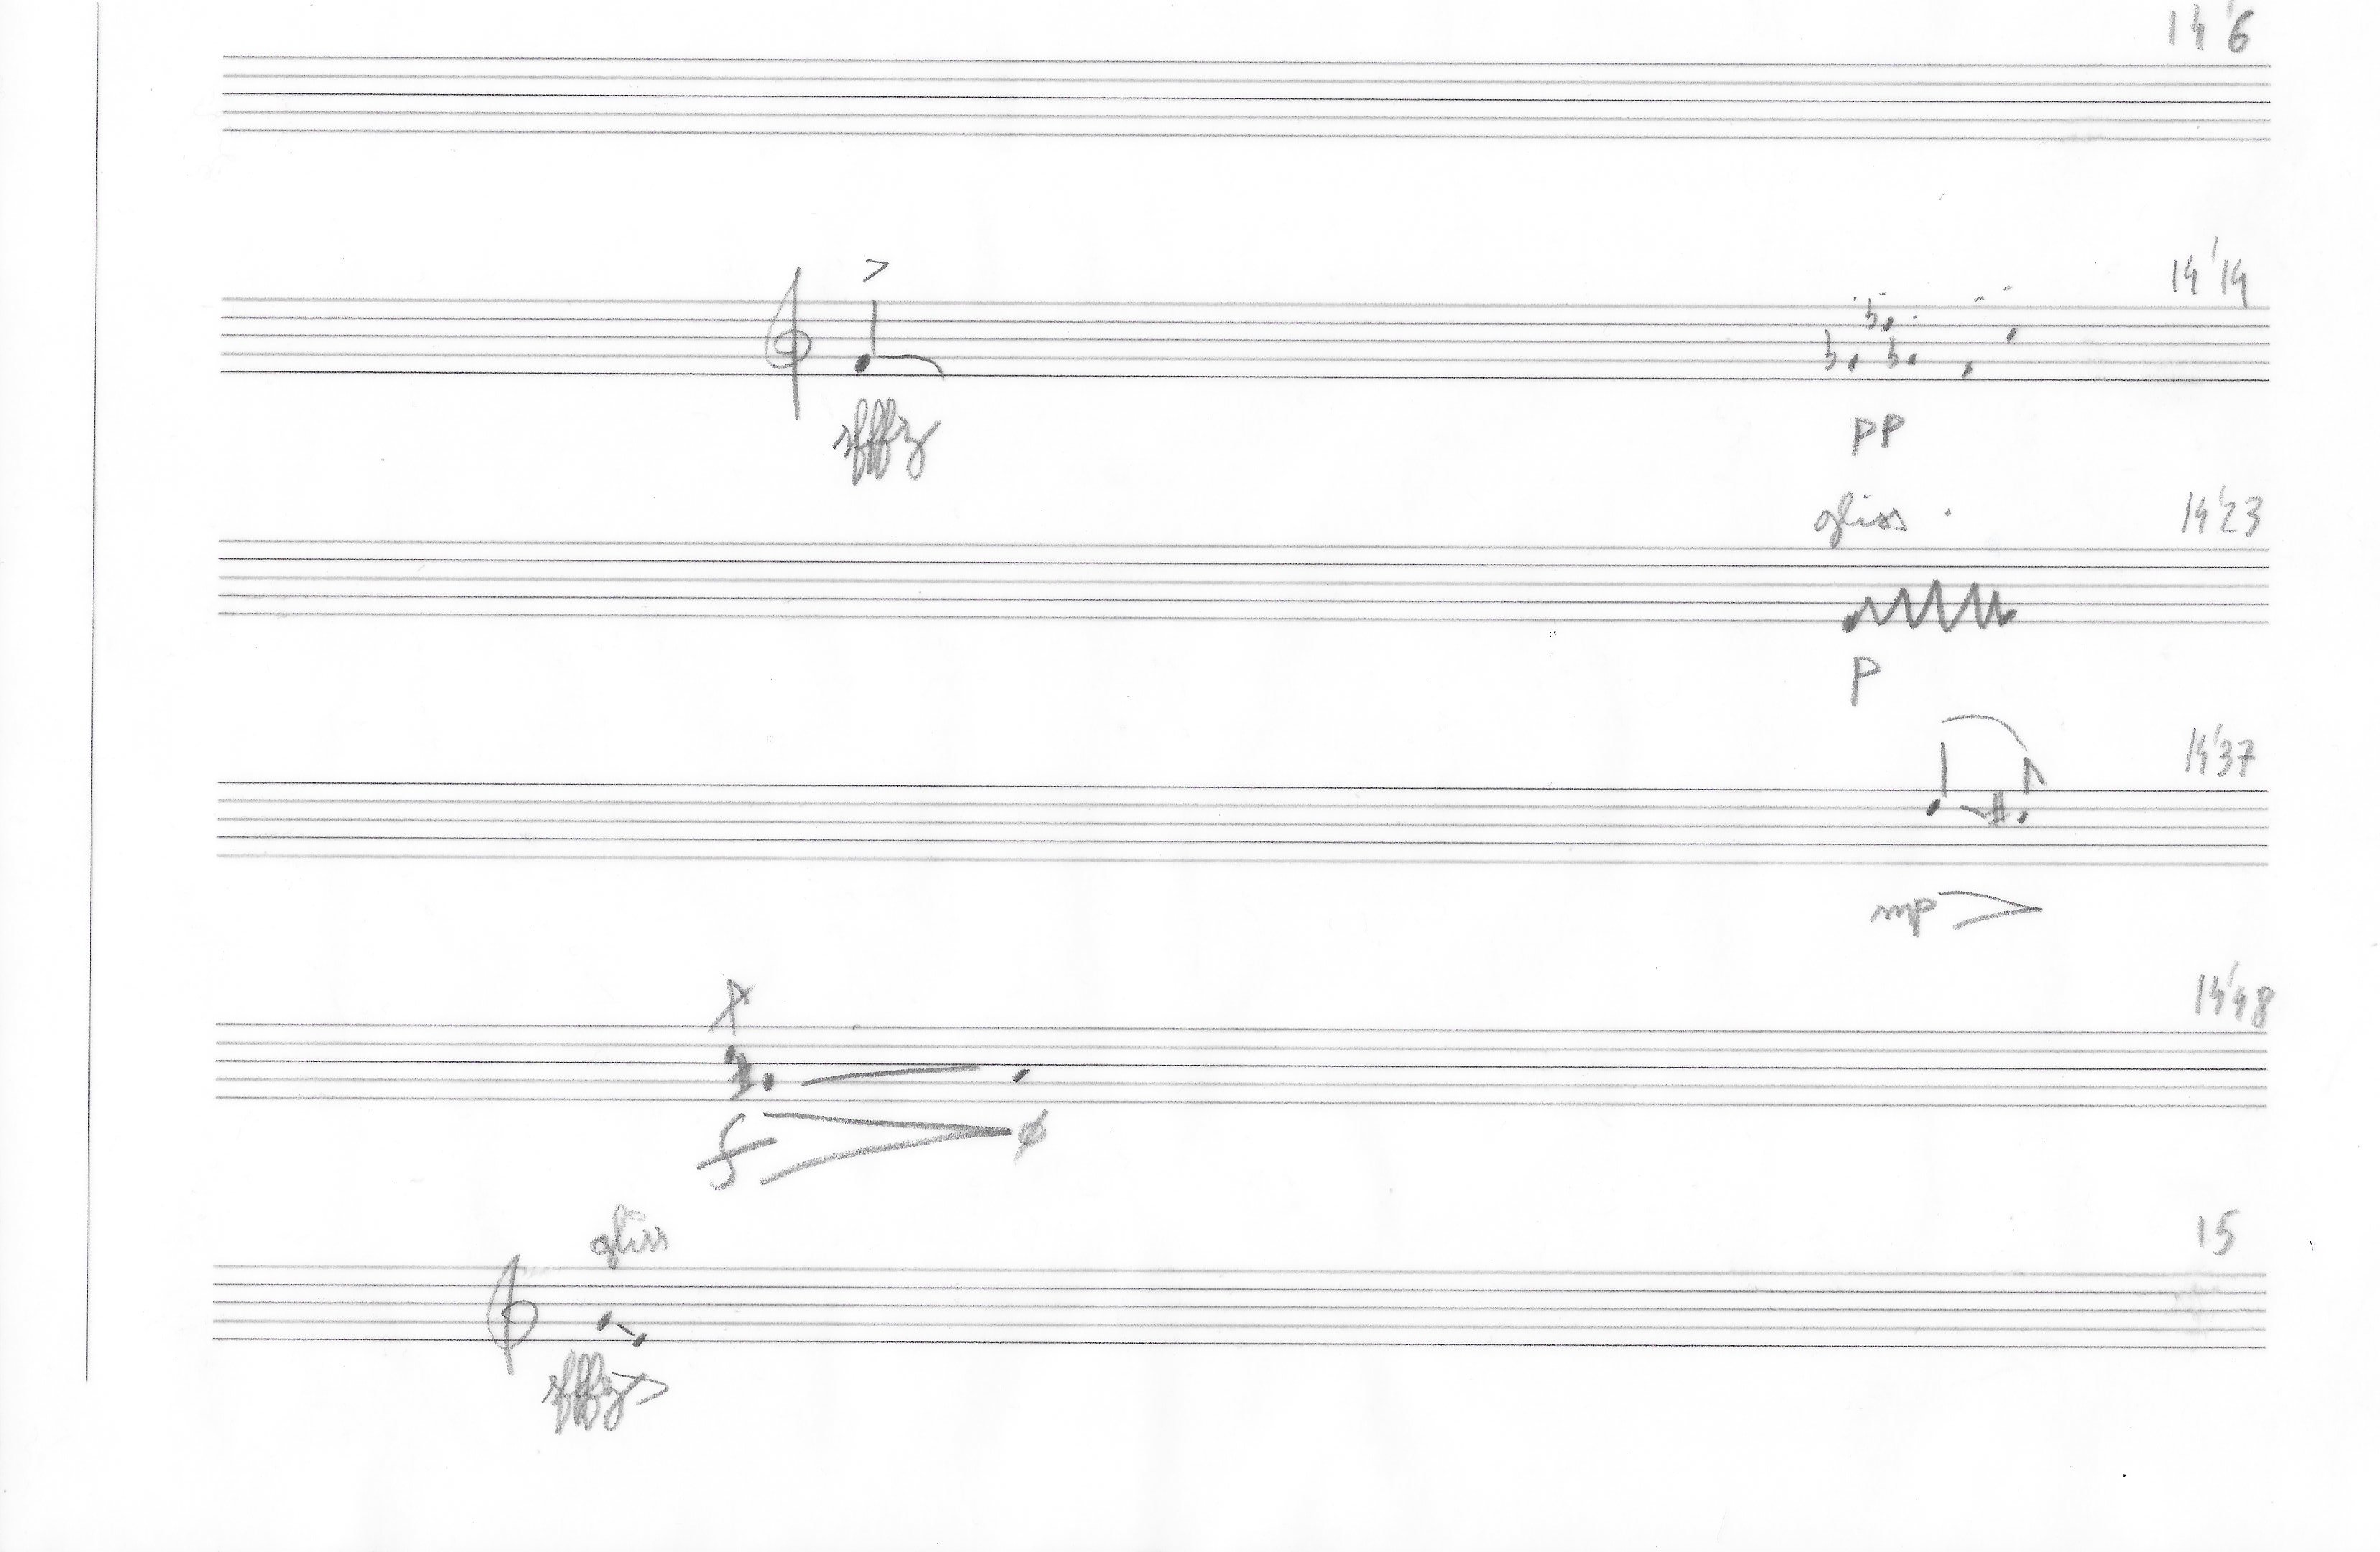 14'6
14'14
sfffz
pp
gliss.
14'23
p
14'37
mp
14'48
f
gliss
15
sfffz